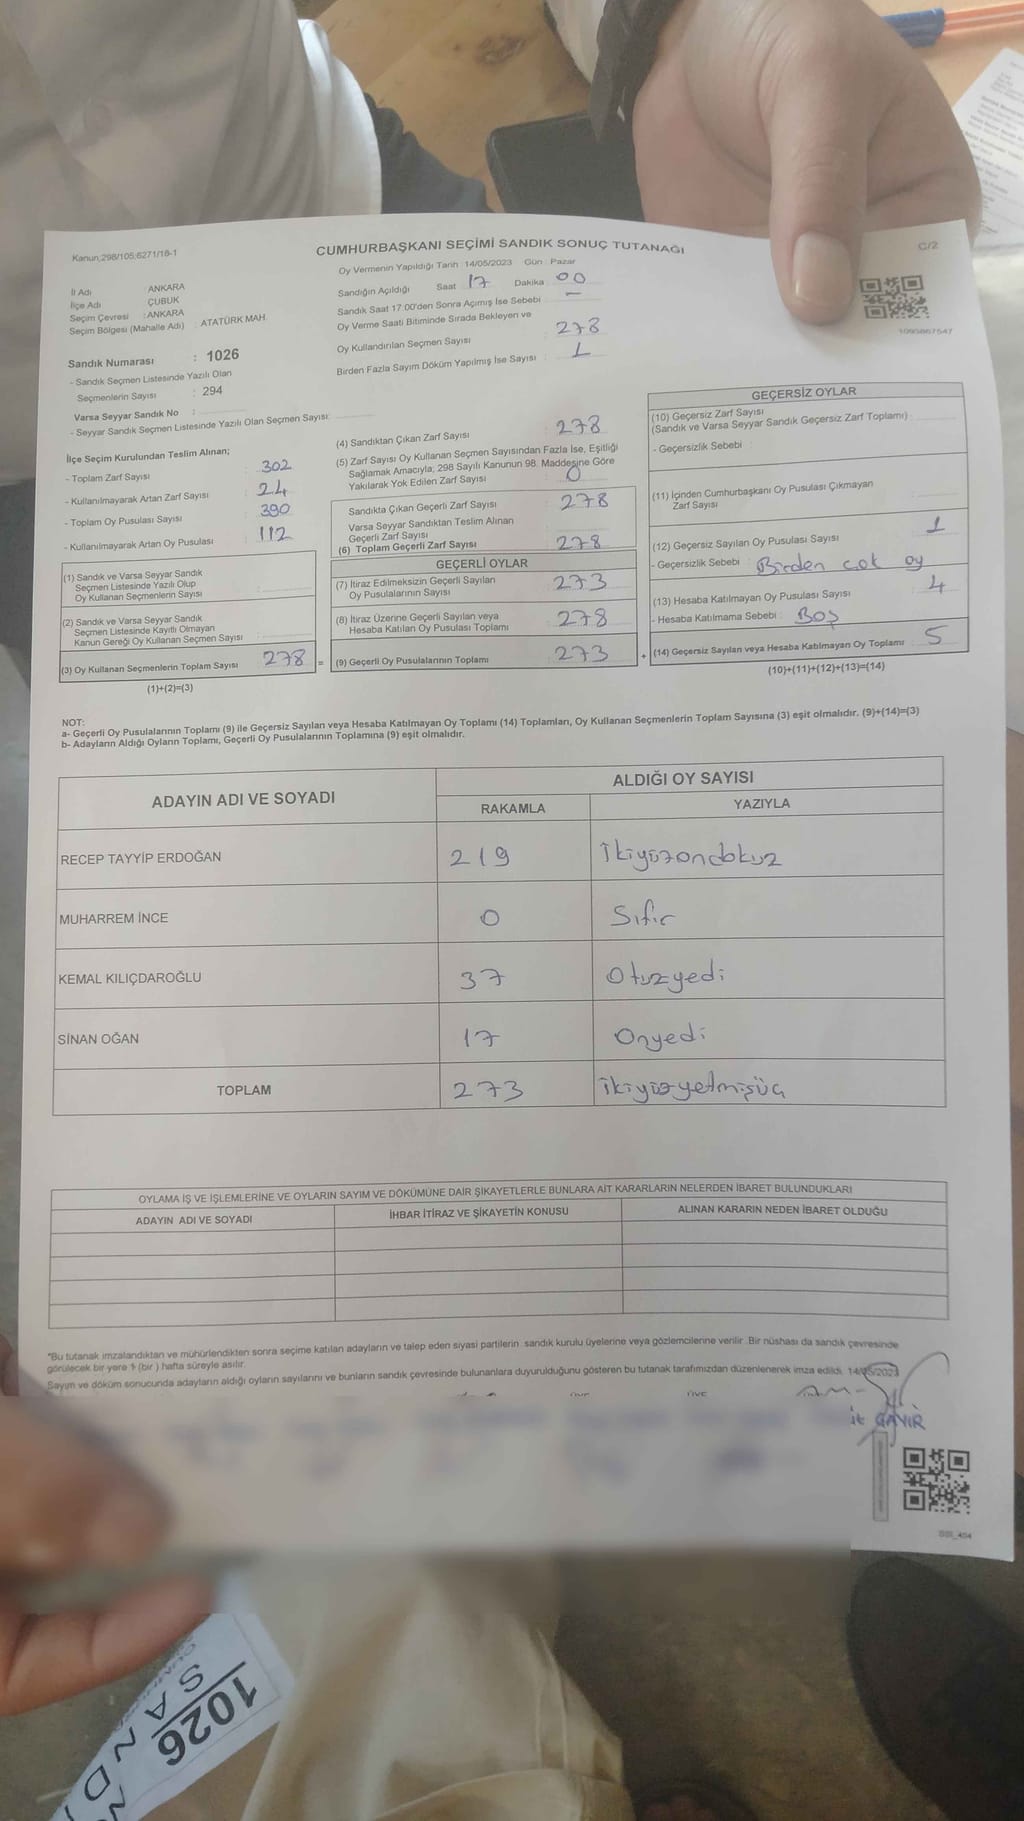 Kanun;298/105;6271/18-1
CUMHURBAŞKANI SEÇİMİ SANDIK SONUÇ TUTANAĞI
C/2
İl Adı ANKARA
İlçe Adı ÇUBUK
Seçim Çevresi : ANKARA
Seçim Bölgesi (Mahalle Adı) : ATATÜRK MAH.
Oy Vermenin Yapıldığı Tarih 14/05/2023 Gün Pazar
Sandığın Açıldığı Saat 17 Dakika 00
Sandık Saat 17:00'den Sonra Açımış İse Sebebi –
Oy Verme Saati Bitiminde Sırada Bekleyen ve
Oy Kullandırılan Seçmen Sayısı 278
Birden Fazla Sayım Döküm Yapılmış İse Sayısı 1
1095867547
Sandık Numarası : 1026
- Sandık Seçmen Listesinde Yazılı Olan
Seçmenlerin Sayısı : 294
Varsa Seyyar Sandık No :
- Seyyar Sandık Seçmen Listesinde Yazılı Olan Seçmen Sayısı:
İlçe Seçim Kurulundan Teslim Alınan;
- Toplam Zarf Sayısı : 302
- Kullanılmayarak Artan Zarf Sayısı : 24
- Toplam Oy Pusulası Sayısı : 390
- Kullanılmayarak Artan Oy Pusulası : 112
(1) Sandık ve Varsa Seyyar Sandık
Seçmen Listesinde Yazılı Olup
Oy Kullanan Seçmenlerin Sayısı
(2) Sandık ve Varsa Seyyar Sandık
Seçmen Listesinde Kayıtlı Olmayan
Kanun Gereği Oy Kullanan Seçmen Sayısı
(3) Oy Kullanan Seçmenlerin Toplam Sayısı 278 =
(1)+(2)=(3)
(4) Sandıktan Çıkan Zarf Sayısı : 278
(5) Zarf Sayısı Oy Kullanan Seçmen Sayısından Fazla İse, Eşitliği
Sağlamak Amacıyla; 298 Sayılı Kanunun 98. Maddesine Göre
Yakılarak Yok Edilen Zarf Sayısı 0
Sandıkta Çıkan Geçerli Zarf Sayısı : 278
Varsa Seyyar Sandıktan Teslim Alınan
Geçerli Zarf Sayısı
(6) Toplam Geçerli Zarf Sayısı 278
GEÇERLİ OYLAR
(7) İtiraz Edilmeksizin Geçerli Sayılan
Oy Pusulalarının Sayısı 273
(8) İtiraz Üzerine Geçerli Sayılan veya
Hesaba Katılan Oy Pusulası Toplamı 278
(9) Geçerli Oy Pusulalarının Toplamı 273 +
GEÇERSİZ OYLAR
(10) Geçersiz Zarf Sayısı
(Sandık ve Varsa Seyyar Sandık Geçersiz Zarf Toplamı)
- Geçersizlik Sebebi :
(11) İçinden Cumhurbaşkanı Oy Pusulası Çıkmayan
Zarf Sayısı
(12) Geçersiz Sayılan Oy Pusulası Sayısı 1
- Geçersizlik Sebebi : Birden çok oy
(13) Hesaba Katılmayan Oy Pusulası Sayısı 4
- Hesaba Katılmama Sebebi : Boş
(14) Geçersiz Sayılan veya Hesaba Katılmayan Oy Toplamı 5
(10)+(11)+(12)+(13)=(14)
NOT:
a- Geçerli Oy Pusulalarının Toplamı (9) ile Geçersiz Sayılan veya Hesaba Katılmayan Oy Toplamı (14) Toplamları, Oy Kullanan Seçmenlerin Toplam Sayısına (3) eşit olmalıdır. (9)+(14)=(3)
b- Adayların Aldığı Oyların Toplamı, Geçerli Oy Pusulalarının Toplamına (9) eşit olmalıdır.
ADAYIN ADI VE SOYADI
ALDIĞI OY SAYISI
RAKAMLA YAZIYLA
RECEP TAYYİP ERDOĞAN 219 İkiyüzondokuz
MUHARREM İNCE 0 Sıfır
KEMAL KILIÇDAROĞLU 37 Otuzyedi
SİNAN OĞAN 17 Onyedi
TOPLAM 273 ikiyüzyetmişüç
OYLAMA İŞ VE İŞLEMLERİNE VE OYLARIN SAYIM VE DÖKÜMÜNE DAİR ŞİKAYETLERLE BUNLARA AİT KARARLARIN NELERDEN İBARET BULUNDUKLARI
ADAYIN ADI VE SOYADI İHBAR İTİRAZ VE ŞİKAYETİN KONUSU ALINAN KARARIN NEDEN İBARET OLDUĞU
*Bu tutanak imzalandıktan ve mühürlendikten sonra seçime katılan adayların ve talep eden siyasi partilerin sandık kurulu üyelerine veya gözlemcilerine verilir. Bir nüshası da sandık çevresinde
görülecek bir yere 1 (bir) hafta süreyle asılır.
Sayım ve döküm sonucunda adayların aldığı oyların sayılarını ve bunların sandık çevresinde bulunanlara duyurulduğunu gösteren bu tutanak tarafımızdan düzenlenerek imza edildi. 14/05/2023
1026
SAND